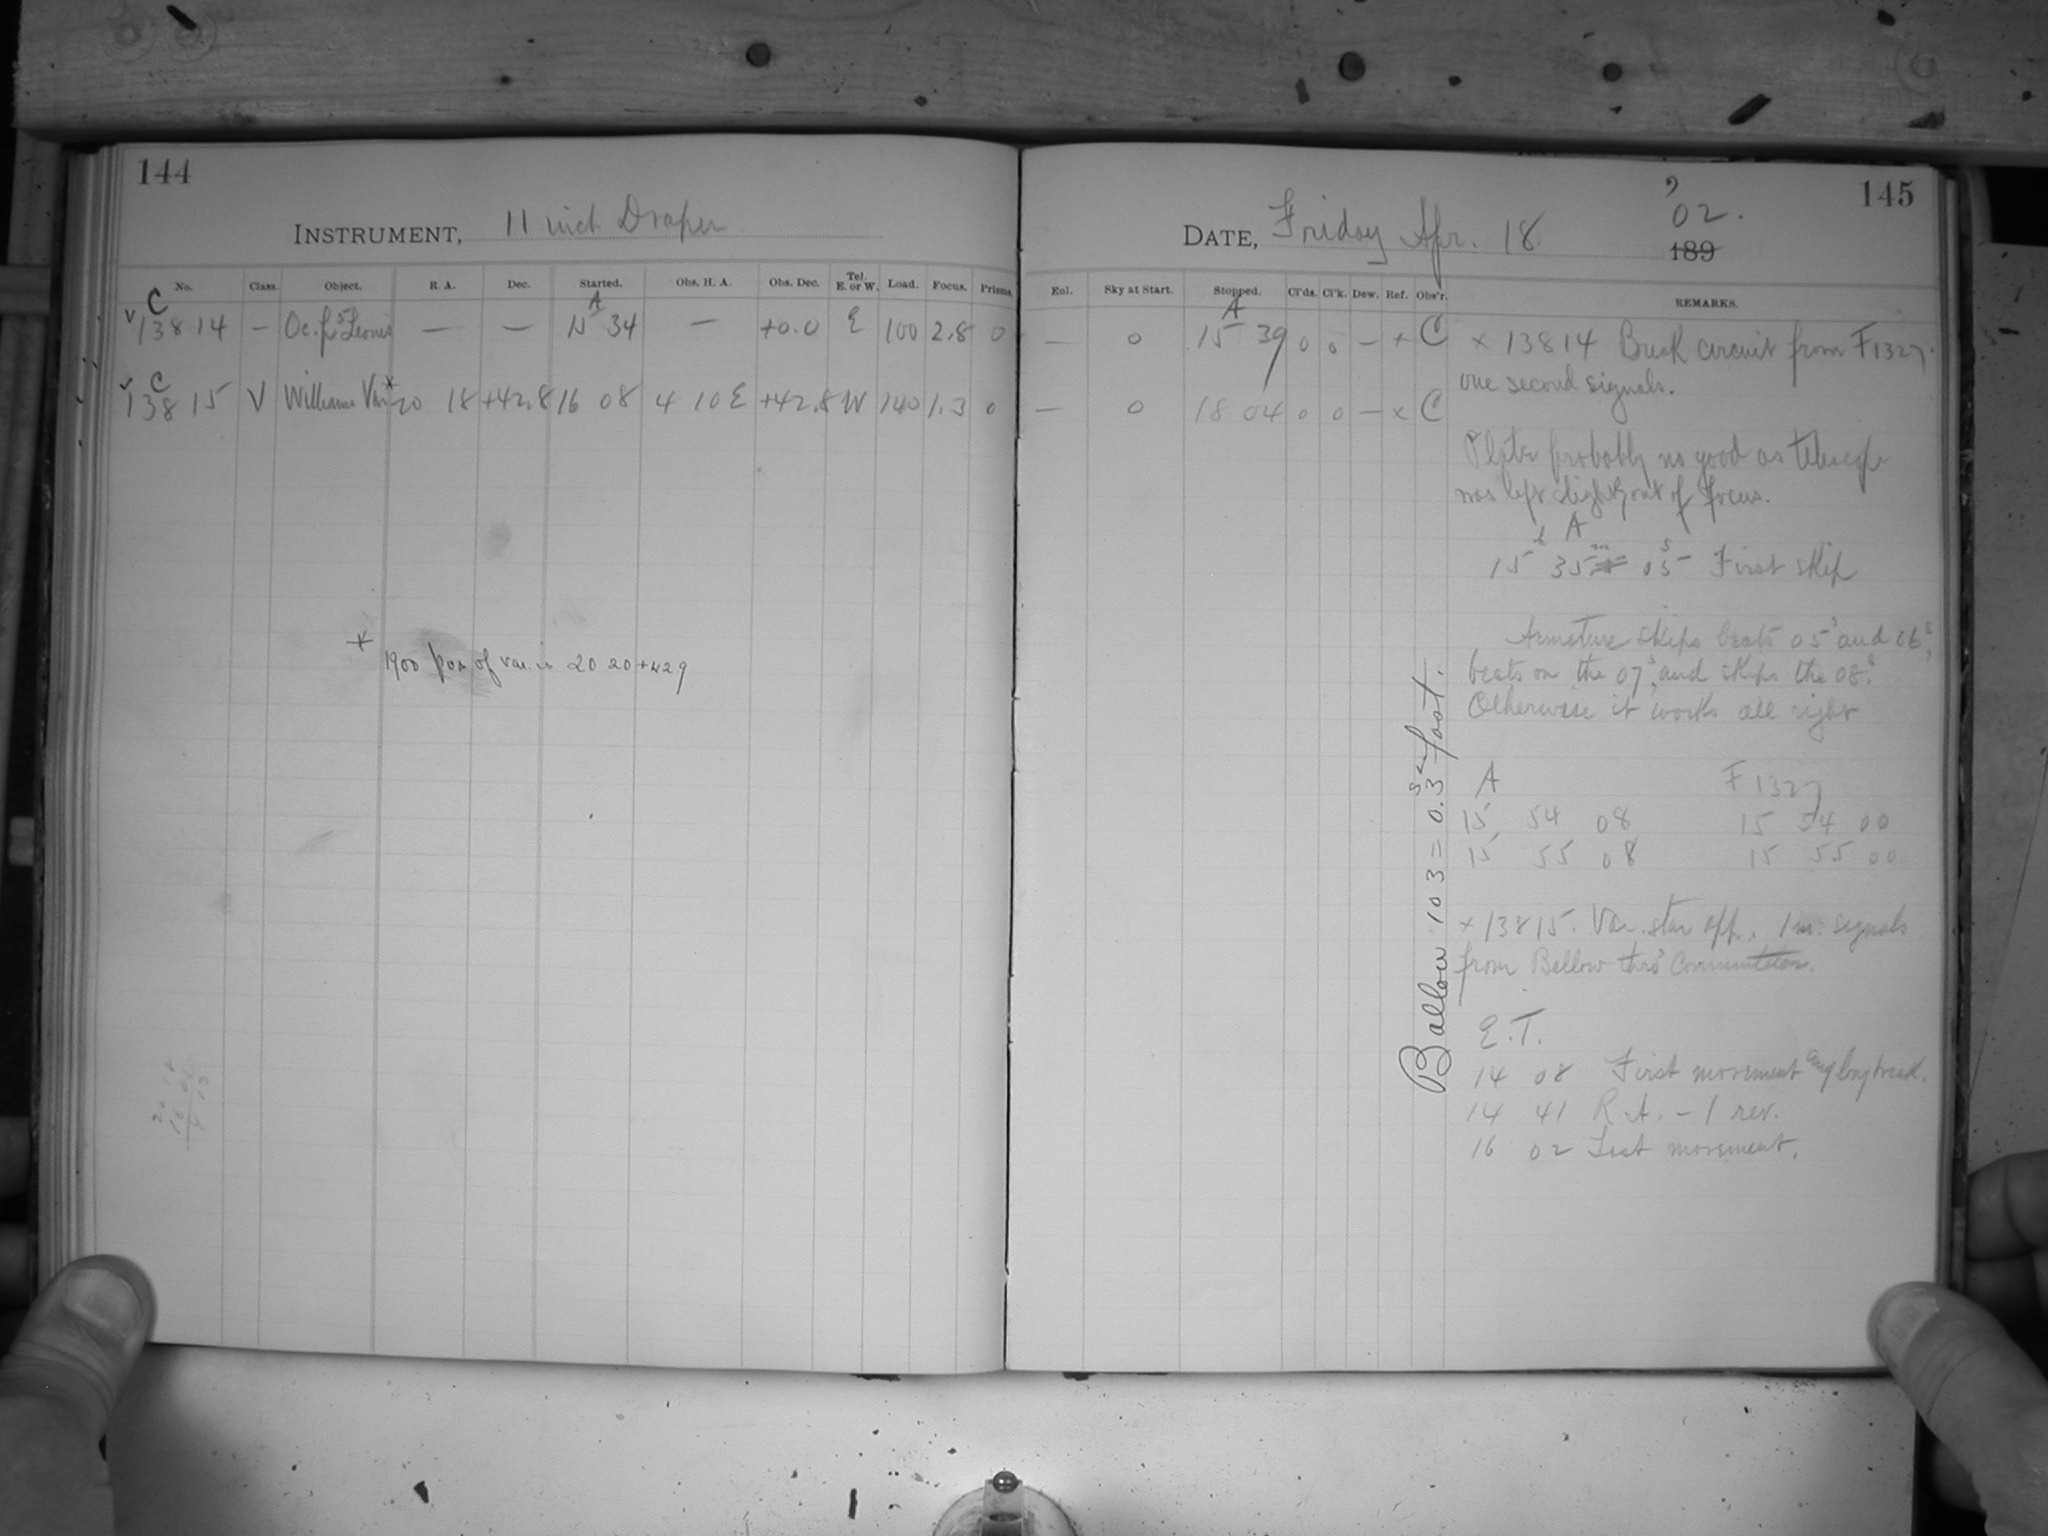 144
INSTRUMENT, 11 inch Draper
No. Class. Object. R. A. Dec. Started. Obs. H. A. Obs. Dec. Tel. E. or W. Load. Focus. Prisms.
C A
v 13814 — Oc. f 5 Leonis — — 15 34 — +0.0 E 100 2.8 0
v C
13815 V Williams Var* 20 18 +42.8 16 08 4 10 E +42.8 W 140 1.3 0
* 1900 pos of var. is 20 20 +42 9
20 18
16 04
145
DATE, Friday Apr. 18. 02.
189
Eul. Sky at Start. Stopped. Cl'ds. Cl'k. Dew. Ref. Obs'r. REMARKS.
A
— 0 15 39 0 0 — + C
— 0 18 04 0 0 — x C
x 13814 Break circuit from F1327.
one second signals.
Plate probably no good as telescope
was left slightly out of focus.
h A m s
15 35 05 — First skip
Armature skips beats 05s and 06s,
beats on the 07s, and skips the 08s.
Otherwise it works all right
A F 1327
15 54 08 15 54 00
15 55 08 15 55 00
Ballow 103 = 0.3 sec fast.
+ 13815. Var. star opp. 1 m. signals
from Ballow thro' Commutator.
E.T.
14 08 First movement long break.
14 41 R.A. — 1 rev.
16 02 Last movement.